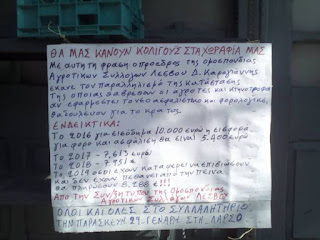 ΘΑ ΜΑΣ ΚΑΝΟΥΝ ΚΟΛΙΓΟΥΣ ΣΤΑ ΧΩΡΑΦΙΑ ΜΑΣ
Με αυτή τη φράση ο πρόεδρος της ομοσπονδίας
Αγροτικών Συλλόγων Λέσβου Δ.
έκανε τον παραλληλισμό της κατάστασης
της οποίας θα βρεθούν οι αγρότες και κτηνοτρόφοι
αν εφαρμοστεί το νέο ασφαλιστικό και φορολογικό,
θα δουλεύουν για το κράτος
ΕΝΔΕΙΚΤΙΚΑ:
Το 2016 για εισόδημα 10.000 ευρώ η εισφορά
για φόρο και ασφάλιση θα είναι 5.400 ευρώ
Το 2017 - 7.613 ευρώ
Το 2018 - 7.951 €
Το 2019 όσοι έχουν καταφέρει να επιβιώσουν
και δεν έχουν πεθάνει από την πείνα
θα πληρώσουν 8.288 € !!!
Από την Συν/ξη τύπου της Ομοσπονδίας
Αγροτικών Συλλόγων ΛΕΣΒΟΥ
ΟΛΟΙ ΚΑΙ ΟΛΕΣ ΣΤΟ ΣΥΛΛΑΛΗΤΗΡΙΟ
ΤΗΝ ΠΑΡΑΣΚΕΥΗ 29 ΓΕΝΑΡΗ ΣΤΗ